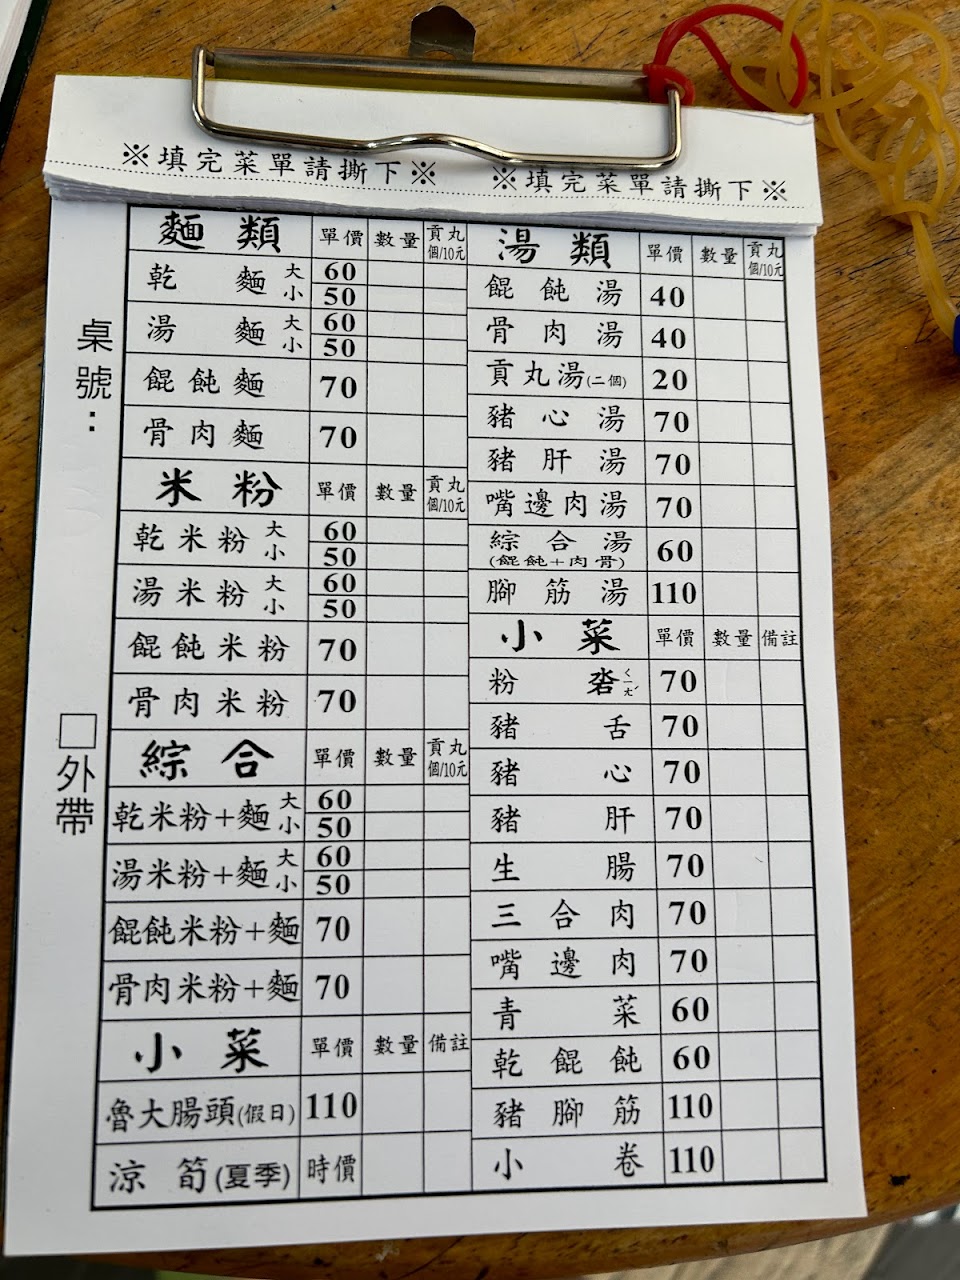 ※填完菜單請撕下※ ※填完菜單請撕下※
桌號：
□外帶
麵類 單價 數量 貢丸個/10元
乾麵 大 60
小 50
湯麵 大 60
小 50
餛飩麵 70
骨肉麵 70
米粉 單價 數量 貢丸個/10元
乾米粉 大 60
小 50
湯米粉 大 60
小 50
餛飩米粉 70
骨肉米粉 70
綜合 單價 數量 貢丸個/10元
乾米粉+麵 大 60
小 50
湯米粉+麵 大 60
小 50
餛飩米粉+麵 70
骨肉米粉+麵 70
小菜 單價 數量 備註
魯大腸頭(假日) 110
涼筍(夏季) 時價
湯類 單價 數量 貢丸個/10元
餛飩湯 40
骨肉湯 40
貢丸湯(二個) 20
豬心湯 70
豬肝湯 70
嘴邊肉湯 70
綜合湯 60
(餛飩+肉骨)
腳筋湯 110
小菜 單價 數量 備註
粉硰ㄑㄧㄤˊ 70
豬舌 70
豬心 70
豬肝 70
生腸 70
三合肉 70
嘴邊肉 70
青菜 60
乾餛飩 60
豬腳筋 110
小卷 110